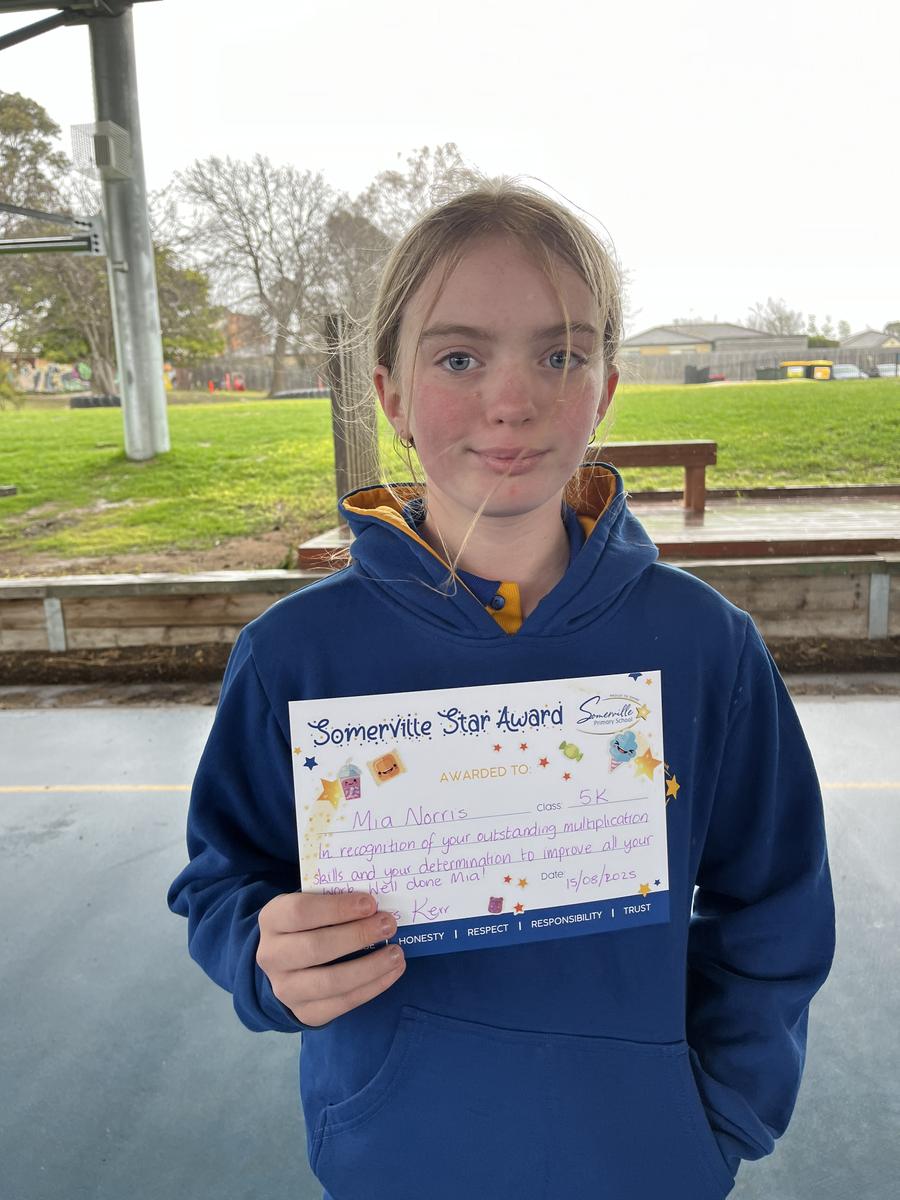 Somerville Star Award
Somerville
Primary School
AWARDED TO:
Mia Norris Class: 5K
In recognition of your outstanding multiplication
skills and your determination to improve all your
work. Well done Mia!
Date: 15/08/2025
Kerr
HONESTY | RESPECT | RESPONSIBILITY | TRUST